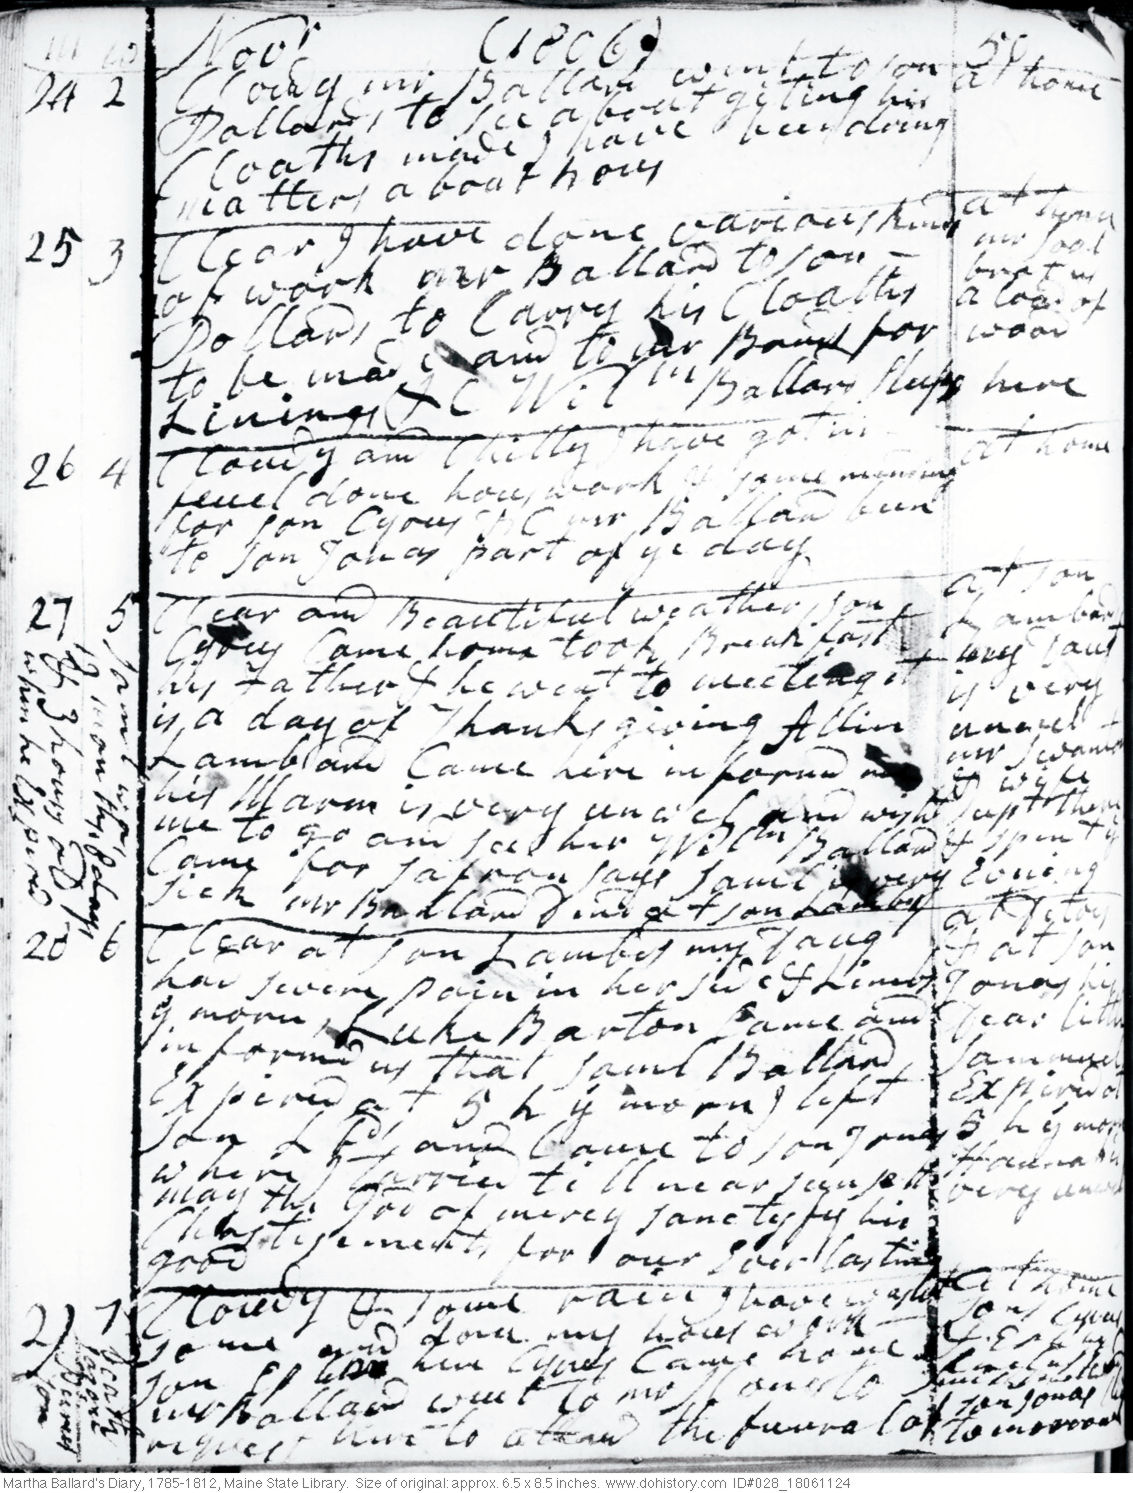 m w Novr (1806) 50
24 2 Cloudy mr Ballard went to son at home
Pollards to see about geting his
Cloaths made I have been doing
matters about hous
25 3 Clear I have done various kinds at home
of work mr Ballard to son mr Good
Pollards to Carry his Cloaths brot us
to be made and to mr Bonds for a load of wood
Linings &C Wilm Ballard sleeps here
26 4 Cloudy and Chilly I have got in at home
feuel done houswork & some mending
for son Cyrus &C mr Ballard been
to son Jonas part of ye day
27 5 Clear and Beautiful weather son at son
Cyrus Came home took Breakfast Lambards
his Father & he went to meeting it my Daut
is a day of Thanksgiving Allin is very
Lambard Came here informd me unwel
his Marm is very unwel and wisht mr Swanton
me to go and see her Wilm Ballard & wife
Came for safron says Saml is very supt there
sick mr Ballard Dind at son Lambds & spent ye Evning
Saml was
12 months 8 days
& 3 hours old
when he Expird
28 6 Clear at son Lambds my Daug at ditos
had severe pain in her side & Limbs & at son
ys morn, Luke Barton Came and Jonas his
informd us that Saml Ballard Dear little
Expired at 5 h ys morn I left Sammuel
son Lbd and Came to son Jonas Expired at
where I tarried till near sun sett 5 h ys morn
may the God of mercy sanctyfy his Hannah is
Chastisements for our Everlasting very unwel
good
29 7 Cloudy & some rain I have washt at home
some and done my hous work sons Cyrus
son Ephm here Cyrus Came home & Ephm
mr Ballard went to mr Stones to
request him to attend the funeral of son Jonas
tomorrow
Death
Jonas
son